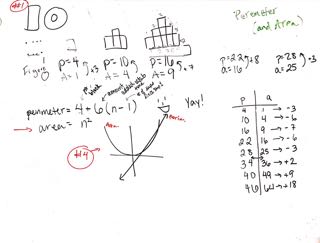 Perimeter
(and Area)
Figure
P=4
A=1
P=10
A=4
P=16
A=9
P=22
a=16
P=28
a=25
perimeter = 4 + 6(n-1)
→ area = n²
Yay!
Area
#14
P a
4 1 → -3
10 4 → -6
16 9 → -7
22 16 → -6
28 25 → -3
34 36 → +2
40 49 → +9
46 64 → +18